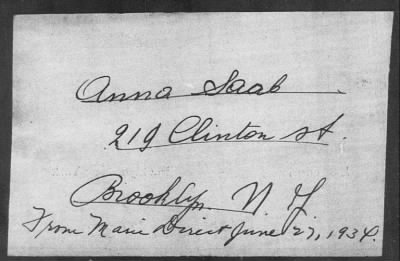 Anna Saab
219 Clinton st.
Brooklyn N Y
From Marie Direct June 27, 1934.